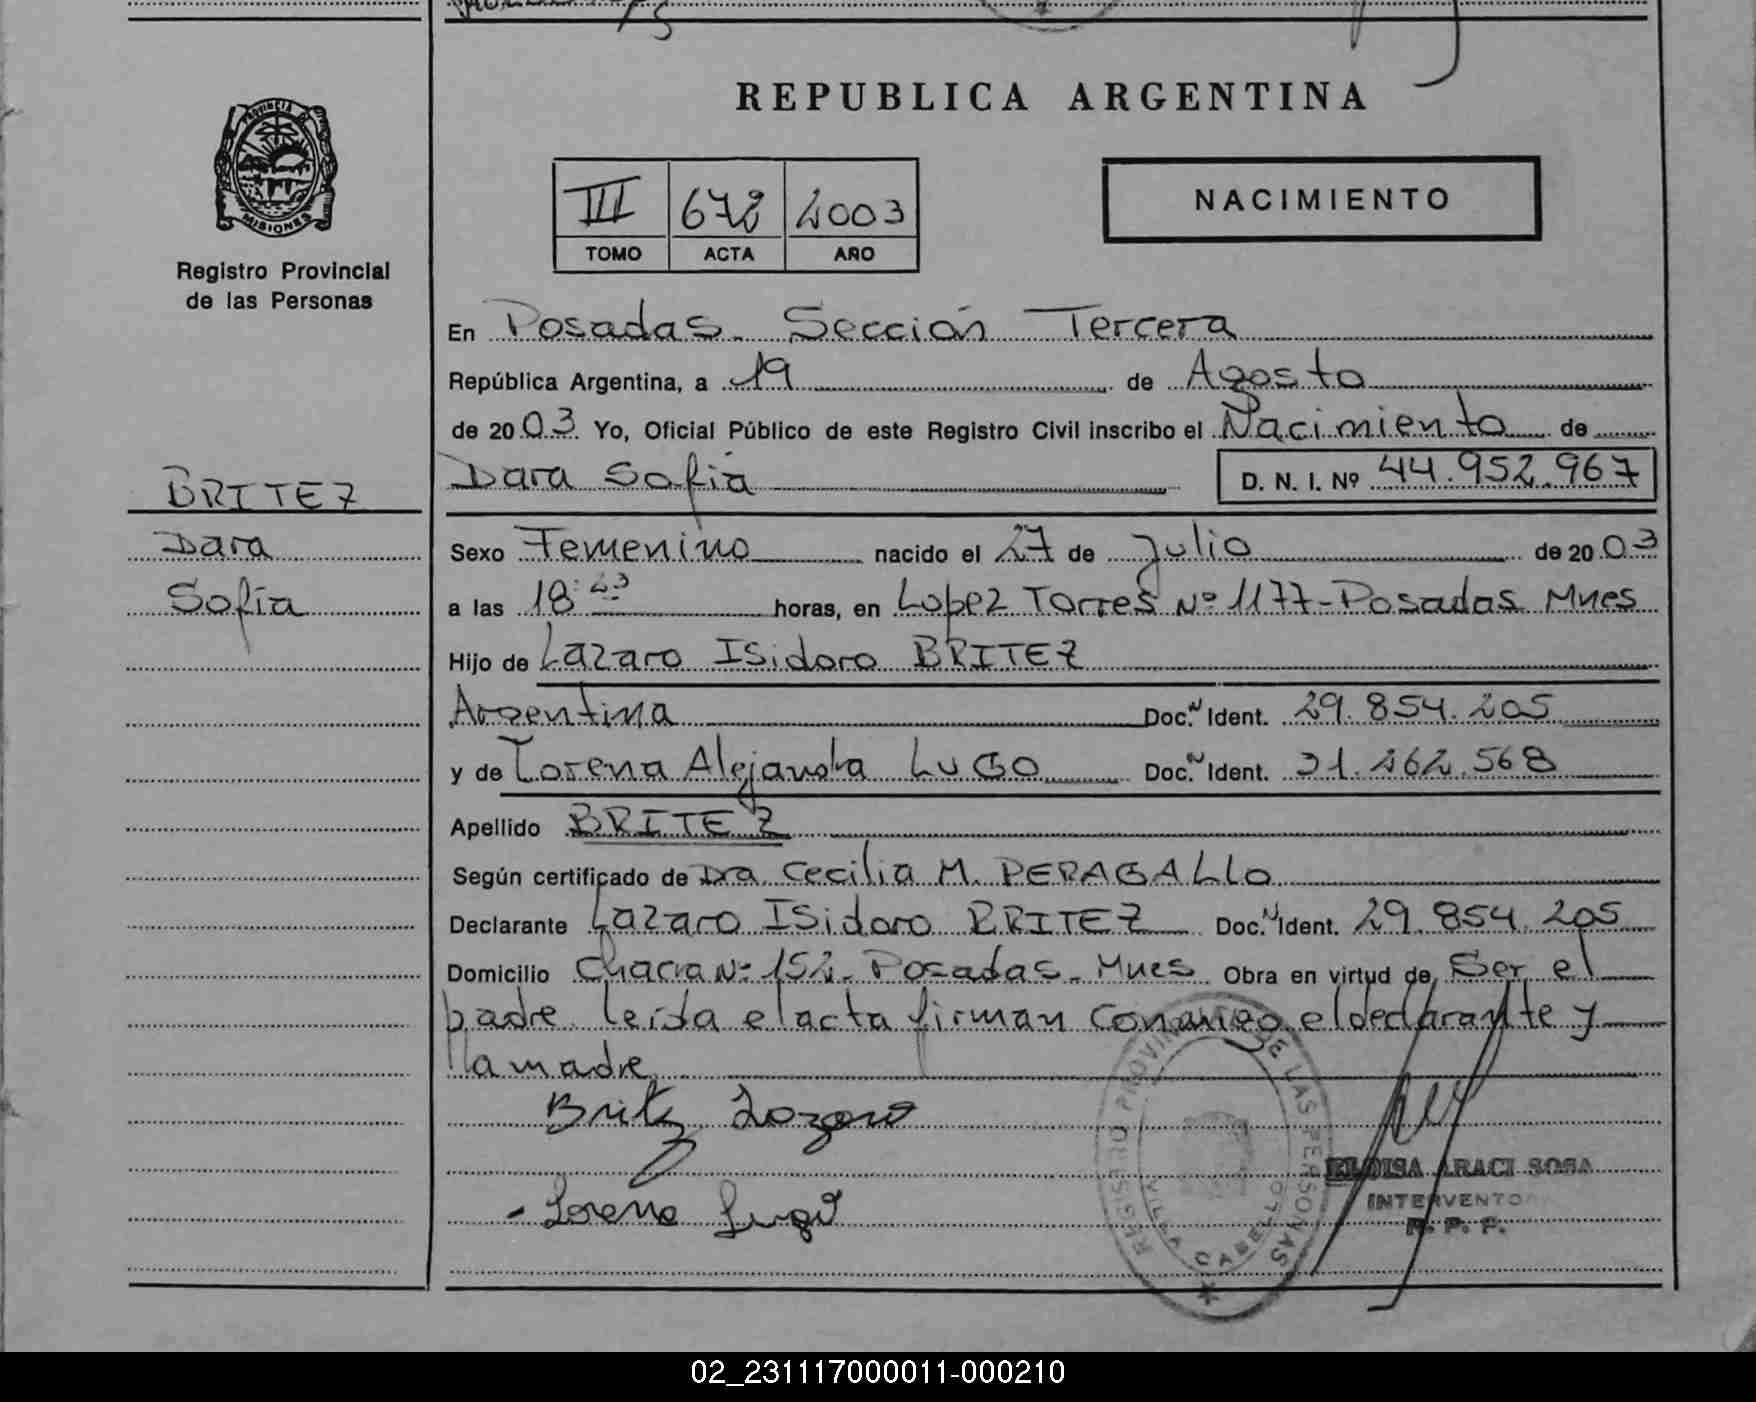 REPUBLICA ARGENTINA
PROVINCIA DE
MISIONES
Registro Provincial
de las Personas
III 672 2003
TOMO ACTA AÑO
NACIMIENTO
En Posadas. Sección Tercera
República Argentina, a 19 de Agosto
de 20 03 Yo, Oficial Público de este Registro Civil inscribo el Nacimiento de
Dara Sofia D. N. I. Nº 44.952.967
BRITEZ
Dara
Sofia
Sexo Femenino nacido el 27 de Julio de 20 03
a las 18:23 horas, en Lopez Torres Nº 1177-Posadas Mnes
Hijo de Lazaro Isidoro BRITEZ
Argentina Doc. N Ident. 29.854.205
y de Lorena Alejandra LUGO Doc. N Ident. 31.262.568
Apellido BRITEZ
Según certificado de Dra. Cecilia M. PERAGALLO
Declarante Lazaro Isidoro BRITEZ Doc. N Ident. 29.854.205
Domicilio Chacra Nº 152. Posadas. Mnes Obra en virtud de Ser el
padre leida el acta firman conmigo el declarante y
la madre
Britez Lazaro
Lorena Lugo
REGISTRO PROVINCIAL DE LAS PERSONAS
VILLA CABELLO
ELOISA ARACI SOSA
INTERVENTO
R. P. P.
02_231117000011-000210